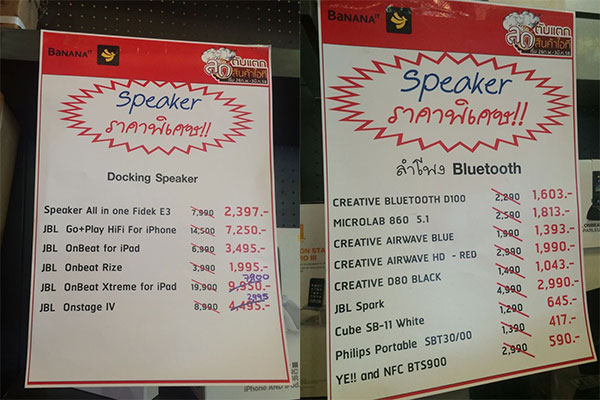 BaNANA IT
ลด ตับแตก
สินค้าไอที
Speaker
ราคาพิเศษ!!
Docking Speaker
Speaker All in one Fidek E3 7,990 2,397.-
JBL Go+Play HiFi For iPhone 14,500 7,250.-
JBL OnBeat for iPad 6,990 3,495.-
JBL Onbeat Rize 3,990 1,995.-
7900
JBL OnBeat Xtreme for iPad 19,900 9,950.-
2995
JBL Onstage IV 8,990 4,495.-
BaNANA IT
ลด ตับแตก
สินค้าไอที
Speaker
ราคาพิเศษ!!
ลำโพง Bluetooth
CREATIVE BLUETOOTH D100 2,290 1,603.-
MICROLAB 860 5.1 2,590 1,813.-
CREATIVE AIRWAVE BLUE 1,990 1,393.-
CREATIVE AIRWAVE HD - RED 2,990 1,990.-
CREATIVE D80 BLACK 1,490 1,043.-
JBL Spark 4,990 2,990.-
Cube SB-11 White 1,290 645.-
Philips Portable SBT30/00 1,390 417.-
YE!! and NFC BTS900 2,990 590.-